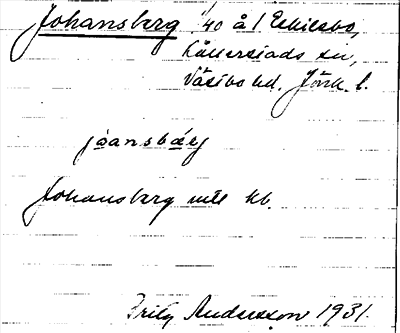 Johansberg 40 å / Eskilsbo,
sn,
Väsebo hd. Jönk. l.
jòansbǽrj
Johansberg mtl kb.
Fritz Andersson 1931.